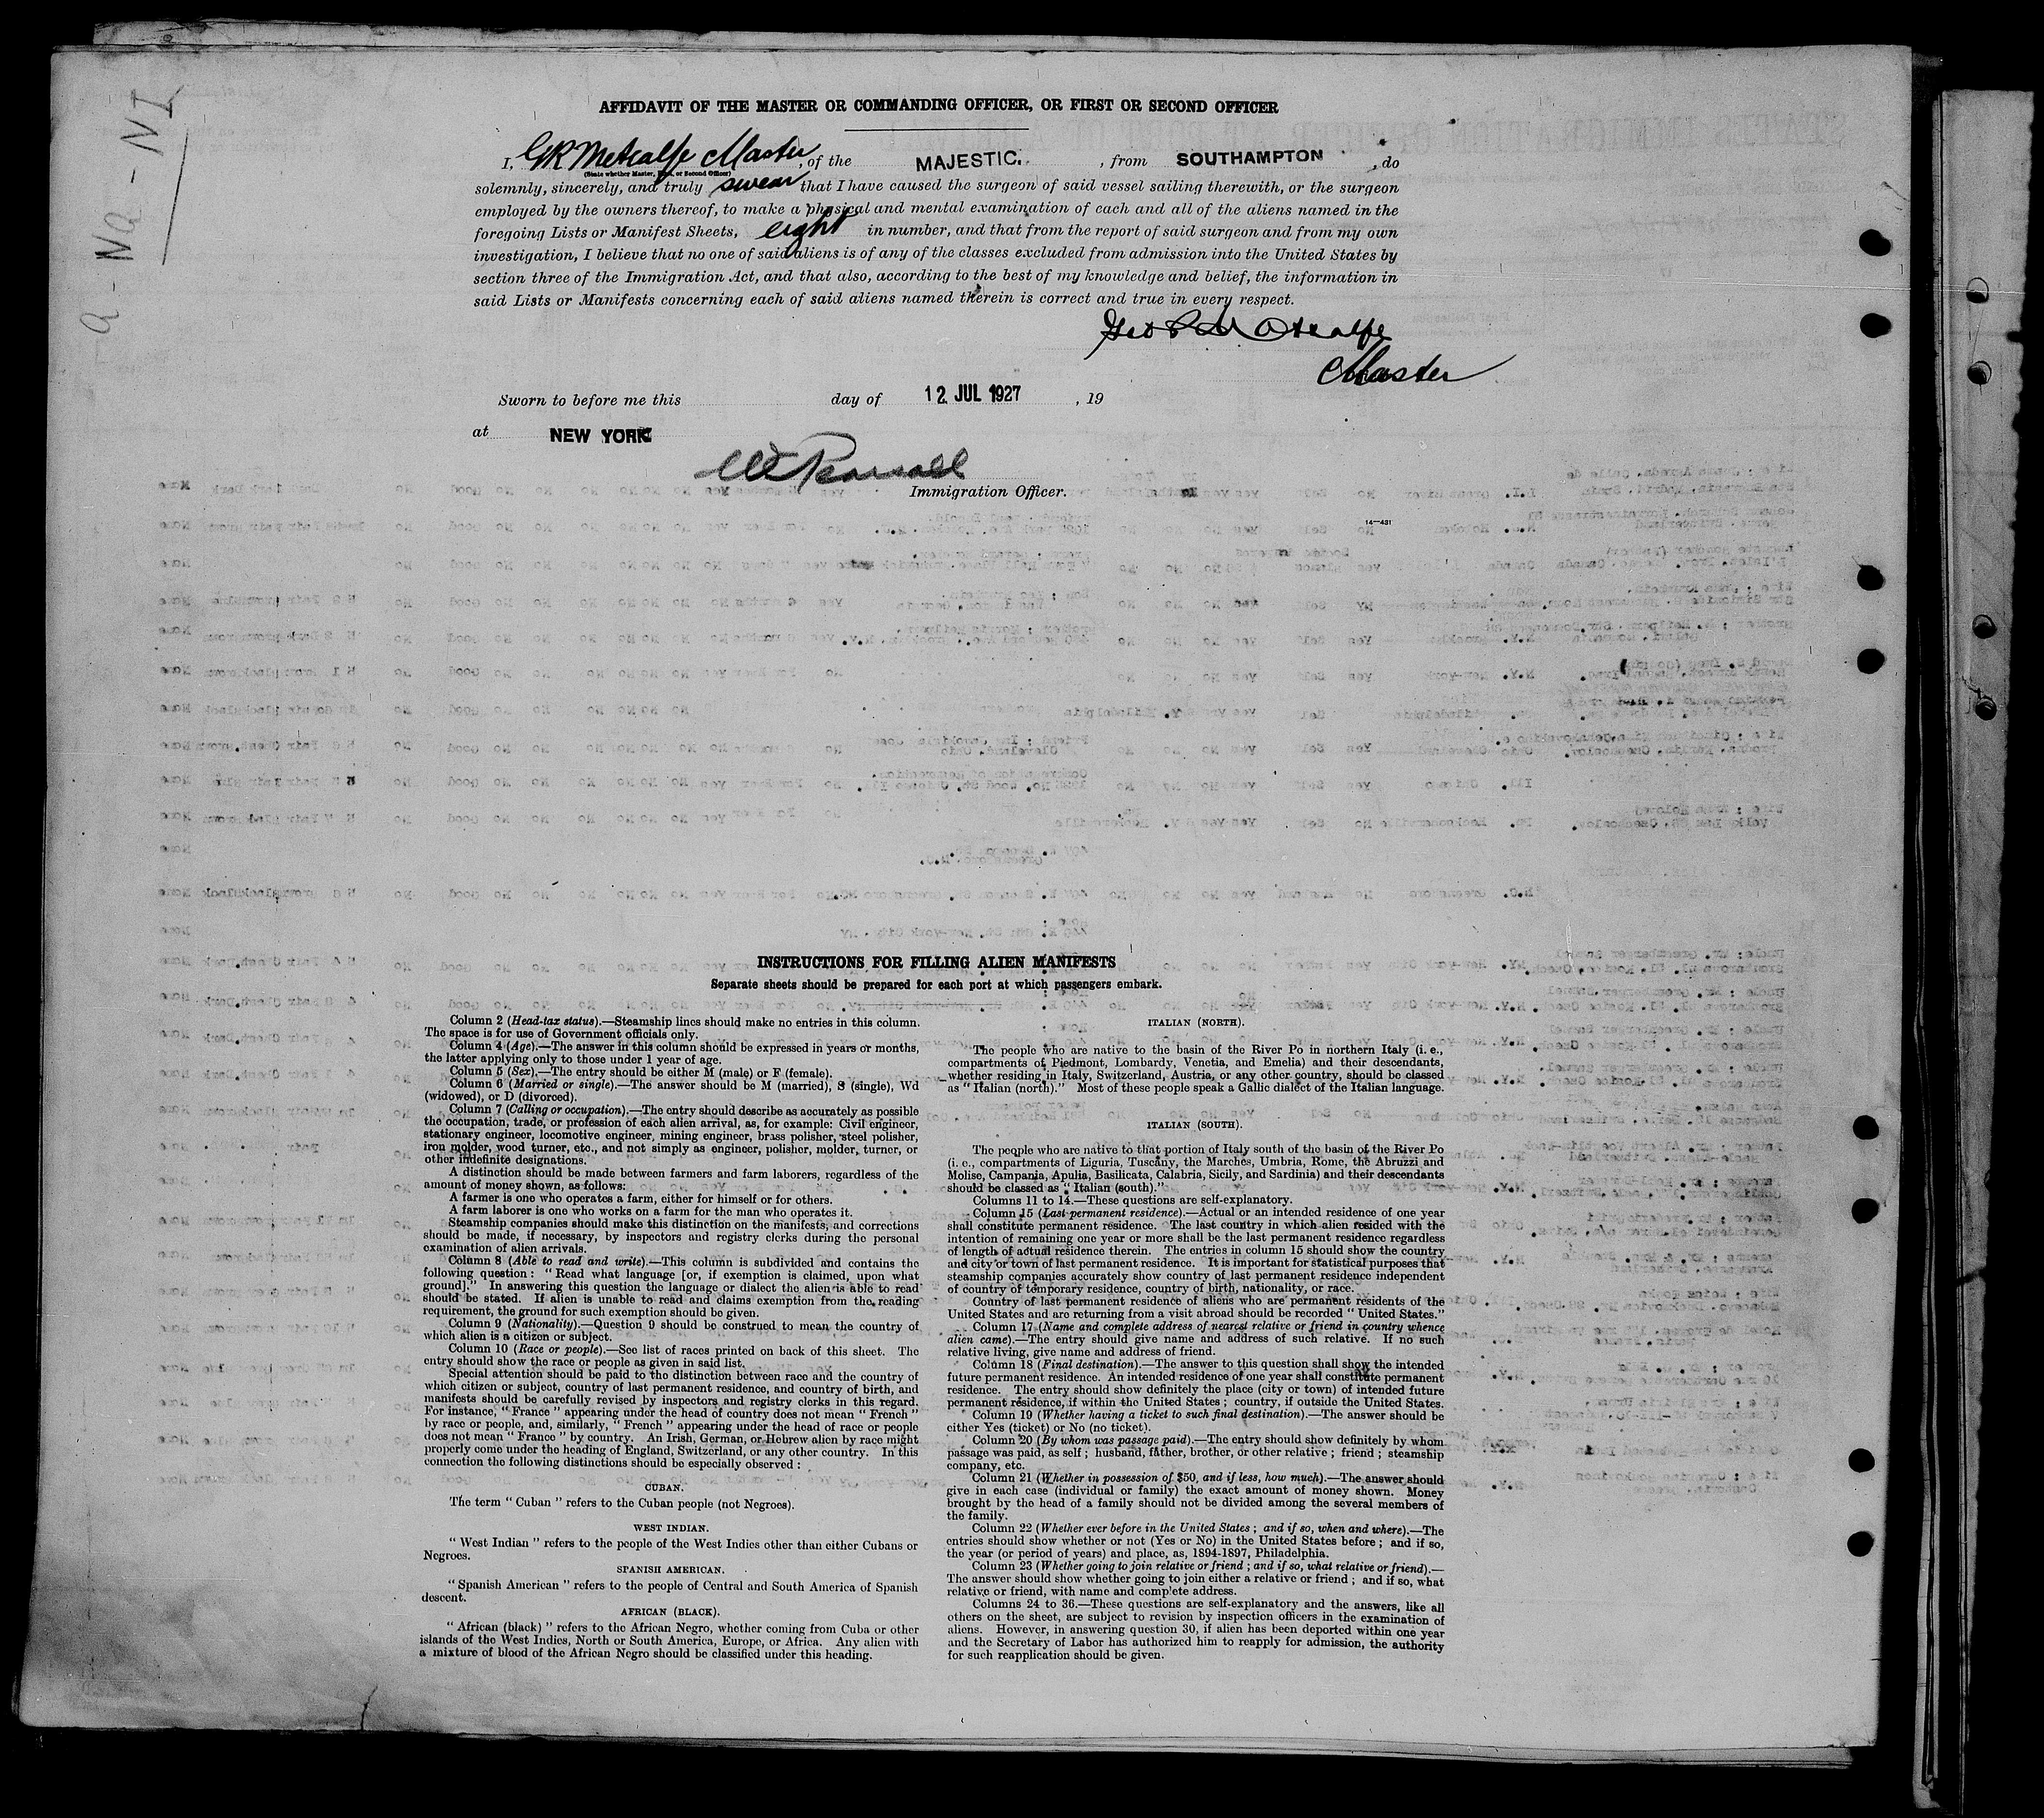 a - Na - NI
AFFIDAVIT OF THE MASTER OR COMMANDING OFFICER, OR FIRST OR SECOND OFFICER
I, GR Metcalfe Master, of the MAJESTIC, from SOUTHAMPTON, do
(State whether Master, First, or Second Officer)
solemnly, sincerely, and truly swear that I have caused the surgeon of said vessel sailing therewith, or the surgeon
employed by the owners thereof, to make a physical and mental examination of each and all of the aliens named in the
foregoing Lists or Manifest Sheets, eight in number, and that from the report of said surgeon and from my own
investigation, I believe that no one of said aliens is of any of the classes excluded from admission into the United States by
section three of the Immigration Act, and that also, according to the best of my knowledge and belief, the information in
said Lists or Manifests concerning each of said aliens named therein is correct and true in every respect.
Geo R Metcalfe
Master
Sworn to before me this day of 12 JUL 1927, 19
at NEW YORK
Immigration Officer.
14—431
INSTRUCTIONS FOR FILLING ALIEN MANIFESTS
Separate sheets should be prepared for each port at which passengers embark.
Column 2 (Head-tax status).—Steamship lines should make no entries in this column.
The space is for use of Government officials only.
Column 4 (Age).—The answer in this column should be expressed in years or months,
the latter applying only to those under 1 year of age.
Column 5 (Sex).—The entry should be either M (male) or F (female).
Column 6 (Married or single).—The answer should be M (married), S (single), Wd
(widowed), or D (divorced).
Column 7 (Calling or occupation).—The entry should describe as accurately as possible
the occupation, trade, or profession of each alien arrival, as, for example: Civil engineer,
stationary engineer, locomotive engineer, mining engineer, brass polisher, steel polisher,
iron molder, wood turner, etc., and not simply as engineer, polisher, molder, turner, or
other indefinite designations.
A distinction should be made between farmers and farm laborers, regardless of the
amount of money shown, as follows:
A farmer is one who operates a farm, either for himself or for others.
A farm laborer is one who works on a farm for the man who operates it.
Steamship companies should make this distinction on the manifests, and corrections
should be made, if necessary, by inspectors and registry clerks during the personal
examination of alien arrivals.
Column 8 (Able to read and write).—This column is subdivided and contains the
following question: " Read what language [or, if exemption is claimed, upon what
ground]." In answering this question the language or dialect the alien is able to read
should be stated. If alien is unable to read and claims exemption from the reading
requirement, the ground for such exemption should be given.
Column 9 (Nationality).—Question 9 should be construed to mean the country of
which alien is a citizen or subject.
Column 10 (Race or people).—See list of races printed on back of this sheet. The
entry should show the race or people as given in said list.
Special attention should be paid to the distinction between race and the country of
which citizen or subject, country of last permanent residence, and country of birth, and
manifests should be carefully revised by inspectors and registry clerks in this regard.
For instance, " France " appearing under the head of country does not mean " French "
by race or people, and, similarly, " French " appearing under the head of race or people
does not mean " France " by country. An Irish, German, or Hebrew alien by race might
properly come under the heading of England, Switzerland, or any other country. In this
connection the following distinctions should be especially observed :
CUBAN.
The term " Cuban " refers to the Cuban people (not Negroes).
WEST INDIAN.
" West Indian " refers to the people of the West Indies other than either Cubans or
Negroes.
SPANISH AMERICAN.
" Spanish American " refers to the people of Central and South America of Spanish
descent.
AFRICAN (BLACK).
" African (black) " refers to the African Negro, whether coming from Cuba or other
islands of the West Indies, North or South America, Europe, or Africa. Any alien with
a mixture of blood of the African Negro should be classified under this heading.
ITALIAN (NORTH).
The people who are native to the basin of the River Po in northern Italy (i. e.,
compartments of Piedmont, Lombardy, Venetia, and Emelia) and their descendants,
whether residing in Italy, Switzerland, Austria, or any other country, should be classed
as " Italian (north)." Most of these people speak a Gallic dialect of the Italian language.
ITALIAN (SOUTH).
The people who are native to that portion of Italy south of the basin of the River Po
(i. e., compartments of Liguria, Tuscany, the Marches, Umbria, Rome, the Abruzzi and
Molise, Campania, Apulia, Basilicata, Calabria, Sicily, and Sardinia) and their descendants
should be classed as " Italian (south)."
Columns 11 to 14.—These questions are self-explanatory.
Column 15 (Last permanent residence).—Actual or an intended residence of one year
shall constitute permanent residence. The last country in which alien resided with the
intention of remaining one year or more shall be the last permanent residence regardless
of length of actual residence therein. The entries in column 15 should show the country
and city or town of last permanent residence. It is important for statistical purposes that
steamship companies accurately show country of last permanent residence independent
of country of temporary residence, country of birth, nationality, or race.
Country of last permanent residence of aliens who are permanent residents of the
United States and are returning from a visit abroad should be recorded " United States."
Column 17 (Name and complete address of nearest relative or friend in country whence
alien came).—The entry should give name and address of such relative. If no such
relative living, give name and address of friend.
Column 18 (Final destination).—The answer to this question shall show the intended
future permanent residence. An intended residence of one year shall constitute permanent
residence. The entry should show definitely the place (city or town) of intended future
permanent residence, if within the United States ; country, if outside the United States.
Column 19 (Whether having a ticket to such final destination).—The answer should be
either Yes (ticket) or No (no ticket).
Column 20 (By whom was passage paid).—The entry should show definitely by whom
passage was paid, as self ; husband, father, brother, or other relative ; friend ; steamship
company, etc.
Column 21 (Whether in possession of $50, and if less, how much).—The answer should
give in each case (individual or family) the exact amount of money shown. Money
brought by the head of a family should not be divided among the several members of
the family.
Column 22 (Whether ever before in the United States ; and if so, when and where).—The
entries should show whether or not (Yes or No) in the United States before ; and if so,
the year (or period of years) and place, as, 1894-1897, Philadelphia.
Column 23 (Whether going to join relative or friend ; and if so, what relative or friend).—
The answer should show whether going to join either a relative or friend ; and if so, what
relative or friend, with name and complete address.
Columns 24 to 36.—These questions are self-explanatory and the answers, like all
others on the sheet, are subject to revision by inspection officers in the examination of
aliens. However, in answering question 30, if alien has been deported within one year
and the Secretary of Labor has authorized him to reapply for admission, the authority
for such reapplication should be given.